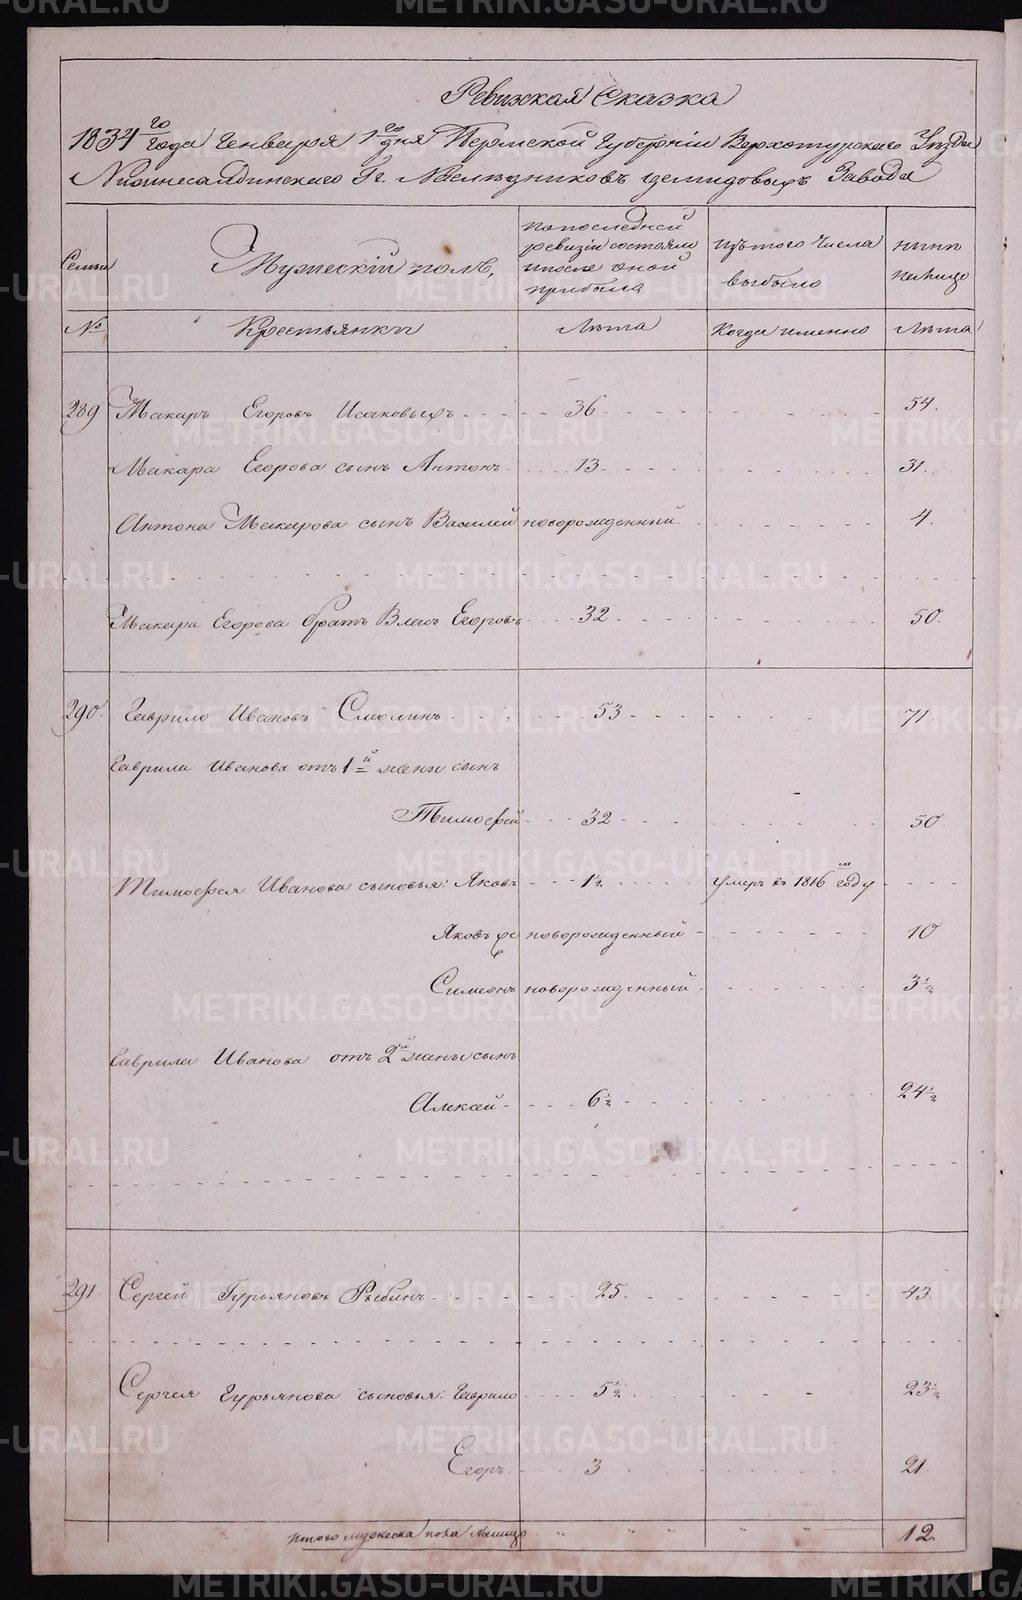 Ревизская Сказка
1834го года Генваря 1го дня Пермской Губернии Верхотурского Уезда
Нижнесалдинского Гг. Наследниковъ Демидовыхъ Завода
Семьи
Мужескій полъ,
по последней ревизіи состояло и после оной прибыло
изъ того числа выбыло
ныне на лицо
№
Крестьянки
Лета
Когда именно
Лета
289 Макаръ Егоровъ Исаковыхъ 36. 54.
Макара Егорова сынъ Антонъ 13. 31.
Антона Макарова сынъ Василей новорожденный. 4.
Макара Егорова братъ Егоровъ 32 50.
290. Гаврило Ивановъ Смолинъ 53 71.
Гаврила Иванова отъ 1й жены сынъ
Тимофей 32 50
Тимофея Иванова сыновья: Яковъ 1½ умеръ въ 1816м году
Яковъ же новорожденный 10
Симеонъ новорожденный 3½
Гаврила Иванова отъ 2й жены сынъ
Алексей 6½ 24½
291. Сергей Гурьяновъ Рыбинъ 25. 43.
Сергея Гурьянова сыновья: Гаврило 5½ 23½
Егоръ. 3 21.
Итого мужеска пола на лицо 12.
METRIKI.GASO-URAL.RU